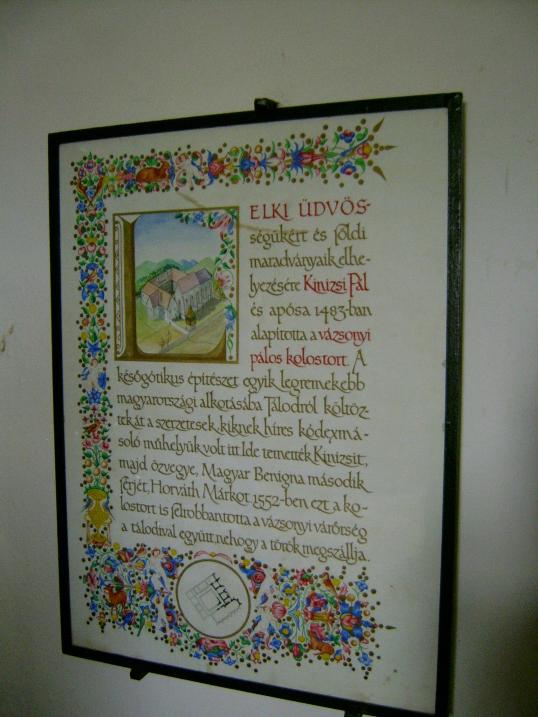 LELKI ÜDVÖS-
ségükért és földi
maradványaik elhe-
lyezésére Kinizsi Pál
és apósa 1483-ban
alapította a vázsonyi
pálos kolostort. A
későgótikus építészet egyik legremekebb
magyarországi alkotásába Tálodról költöz-
tek át a szerzetesek, kiknek híres kódexmá-
soló műhelyük volt itt. Ide temették Kinizsit,
majd özvegye, Magyar Benigna második
férjét, Horváth Márkot. 1552-ben ezt a ko-
lostort is felrobbantotta a vázsonyi várőrség
a tálodival együtt, nehogy a török megszállja.